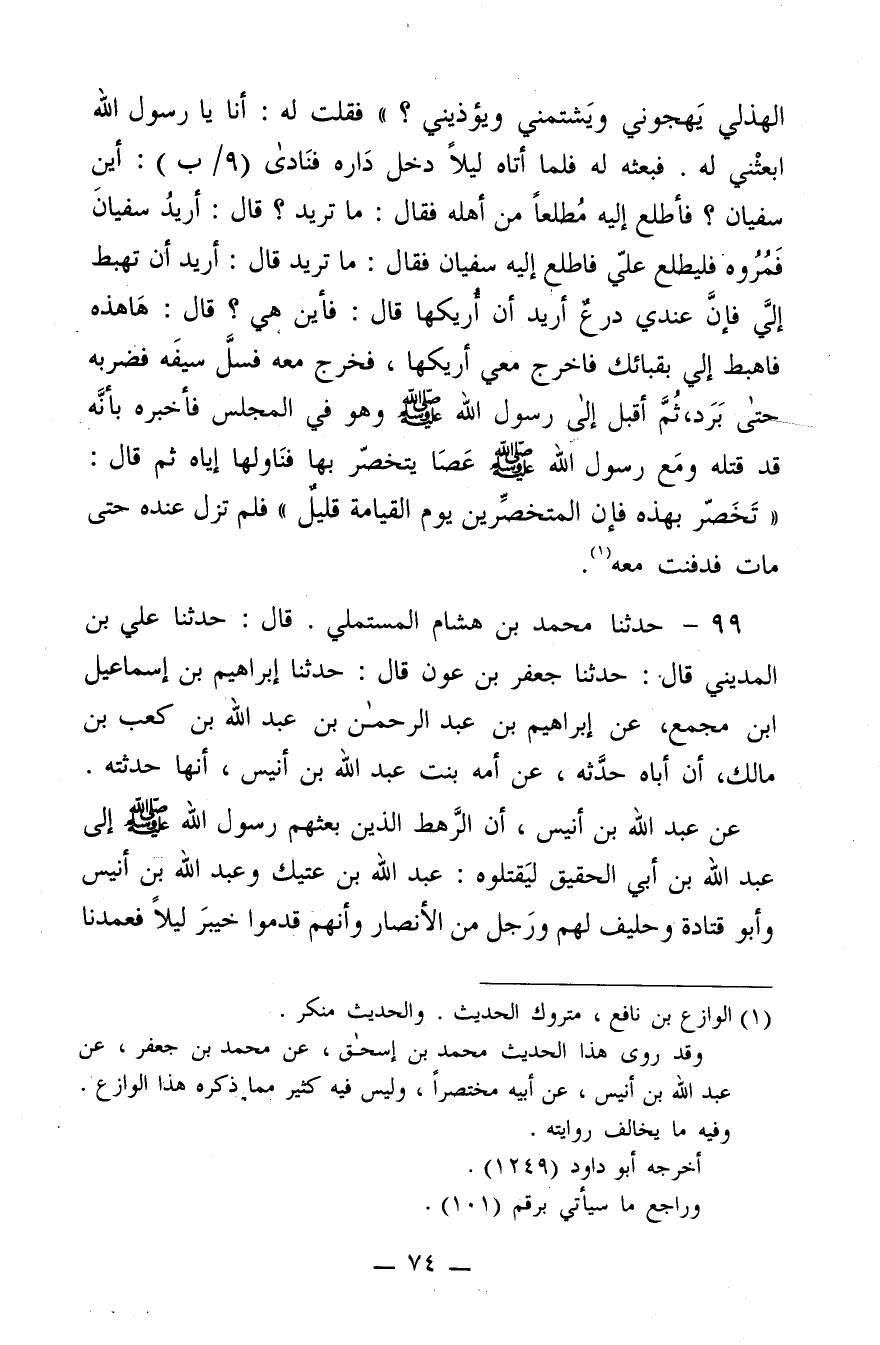 الهذلي يَهجوني ويَشتمني ويؤذيني ؟ » فقلت له : أنا يا رسول الله
ابعثْني له . فبعثه له فلما أتاه ليلاً دخل دَاره فنَادىٰ (٩/ ب ) : أين
سفيان ؟ فأطلع إليه مُطلعاً من أهله فقال : ما تريد ؟ قال : أريدُ سفيانَ
فَمُرُوه فليطلع عليّ فاطلع إليه سفيان فقال : ما تريد قال : أريد أن تهبط
إليَّ فإنَّ عندي درعٌ أريد أن أُريكها قال : فأين هي ؟ قال : هَاهذه
فاهبط إلي بقبائك فاخرج معي أريكها ، فخرج معه فسلَّ سيفَه فضربه
حتىٰ بَرَد،ثُمَّ أقبل إلىٰ رسول الله ﷺ وهو في المجلس فأخبره بأنَّه
قد قتله ومَع رسول الله ﷺ عَصَا يتخصّر بها فنَاولها إياه ثم قال :
« تَخَصّر بهذه فإن المتخصِّرين يوم القيامة قليلٌ » فلم تزل عنده حتى
مات فدفنت معه(١).
٩٩ – حدثنا محمد بن هشام المستملي . قال : حدثنا علي بن
المديني قال : حدثنا جعفر بن عون قال : حدثنا إبراهيم بن إسماعيل
ابن مجمع، عن إبراهيم بن عبد الرحمـٰن بن عبد الله بن كعب بن
مالك، أن أباه حدَّثه ، عن أمه بنت عبد الله بن أنيس ، أنها حدثته .
عن عبد الله بن أنيس ، أن الرَّهط الذين بعثهم رسول الله ﷺ إلى
عبد الله بن أبي الحقيق ليَقتلوه : عبد الله بن عتيك وعبد الله بن أنيس
وأبو قتادة وحليف لهم ورَجل من الأنصار وأنهم قدموا خيبرَ ليلاً فعمدنا
(١) الوازع بن نافع ، متروك الحديث . والحديث منكر .
وقد روى هذا الحديث محمد بن إسحـٰق ، عن محمد بن جعفر ، عن
عبد الله بن أنيس ، عن أبيه مختصراً ، وليس فيه كثير مما ذكره هذا الوازع .
وفيه ما يخالف روايته .
أخرجه أبو داود (١٢٤٩) .
وراجع ما سيأتي برقم (١٠١) .
— ٧٤ —